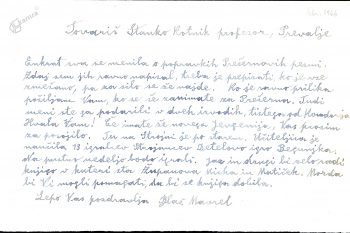 Kamra
Tovariš Stanko Kotnik profesor, Prevalje
Enkrat sva se menila o popravkih Prešernovih pesmi.
Zdaj sem jih ravno napisal, treba je prepisati ko je vse
zmešano, pa za silo se že najde. Ko je ravno prilika
pošiljam Vam, ko se že zanimate za Prešerna. Tudi
meni ste ga podarili v dveh izvodih, tistega od
Hvala Vam! Če imate še novega Jevgenija, Vas prosim
za posojilo. Tu na Strojni je po starem. Učiteljica je
naučila 13 igralcev Strojancev Detelovo igro Begunjka.
Na pustno nedeljo bodo igrali. Jaz in drugi bi zelo radi
knjigo v kateri sta Županova Micka in Matiček. Morda
bi Vi mogli pomagati, da bi se knjiga dobila.
Lepo Vas pozdravlja Blaž Mavrel